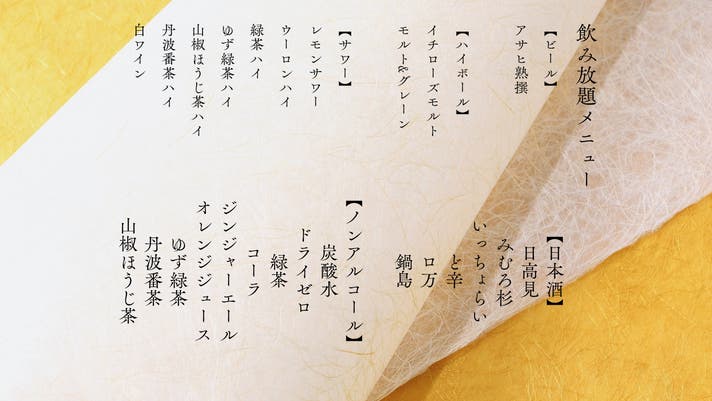 飲み放題メニュー
【ビール】
アサヒ熟撰
【ハイボール】
イチローズモルト
モルト&グレーン
【サワー】
レモンサワー
ウーロンハイ
緑茶ハイ
ゆず緑茶ハイ
山椒ほうじ茶ハイ
丹波番茶ハイ
白ワイン
【日本酒】
日高見
みむろ杉
いっちょらい
ど辛
ロ万
鍋島
【ノンアルコール】
炭酸水
ドライゼロ
緑茶
コーラ
ジンジャーエール
オレンジジュース
ゆず緑茶
丹波番茶
山椒ほうじ茶